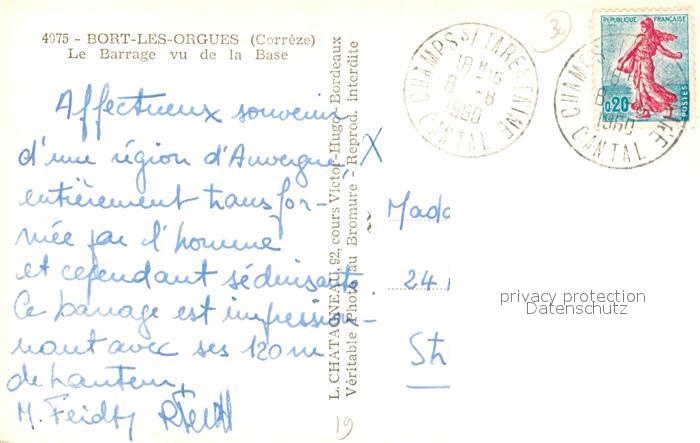 4075 - BORT-LES-ORGUES (Corrèze)
Le Barrage vu de la Base
Affectueux souvenir
d'une région d'Auvergne
entièrement transfor-
mée par l'homme
et cependant séduisante.
Ce barrage est impression-
nant avec ses 120 m
de hauteur
L. CHATAGNEAU, 92, cours Victor-Hugo - Bordeaux
Véritable Photo au Bromure - Reprod. interdite
CHAMPS S/ TARENTAINE
18 H
8 - 8
1960
CANTAL
RÉPUBLIQUE FRANÇAISE
0,20
POSTES
CHAMPS
18
8
1960
CANTAL
Mada
24
St
privacy protection
Datenschutz
30
19